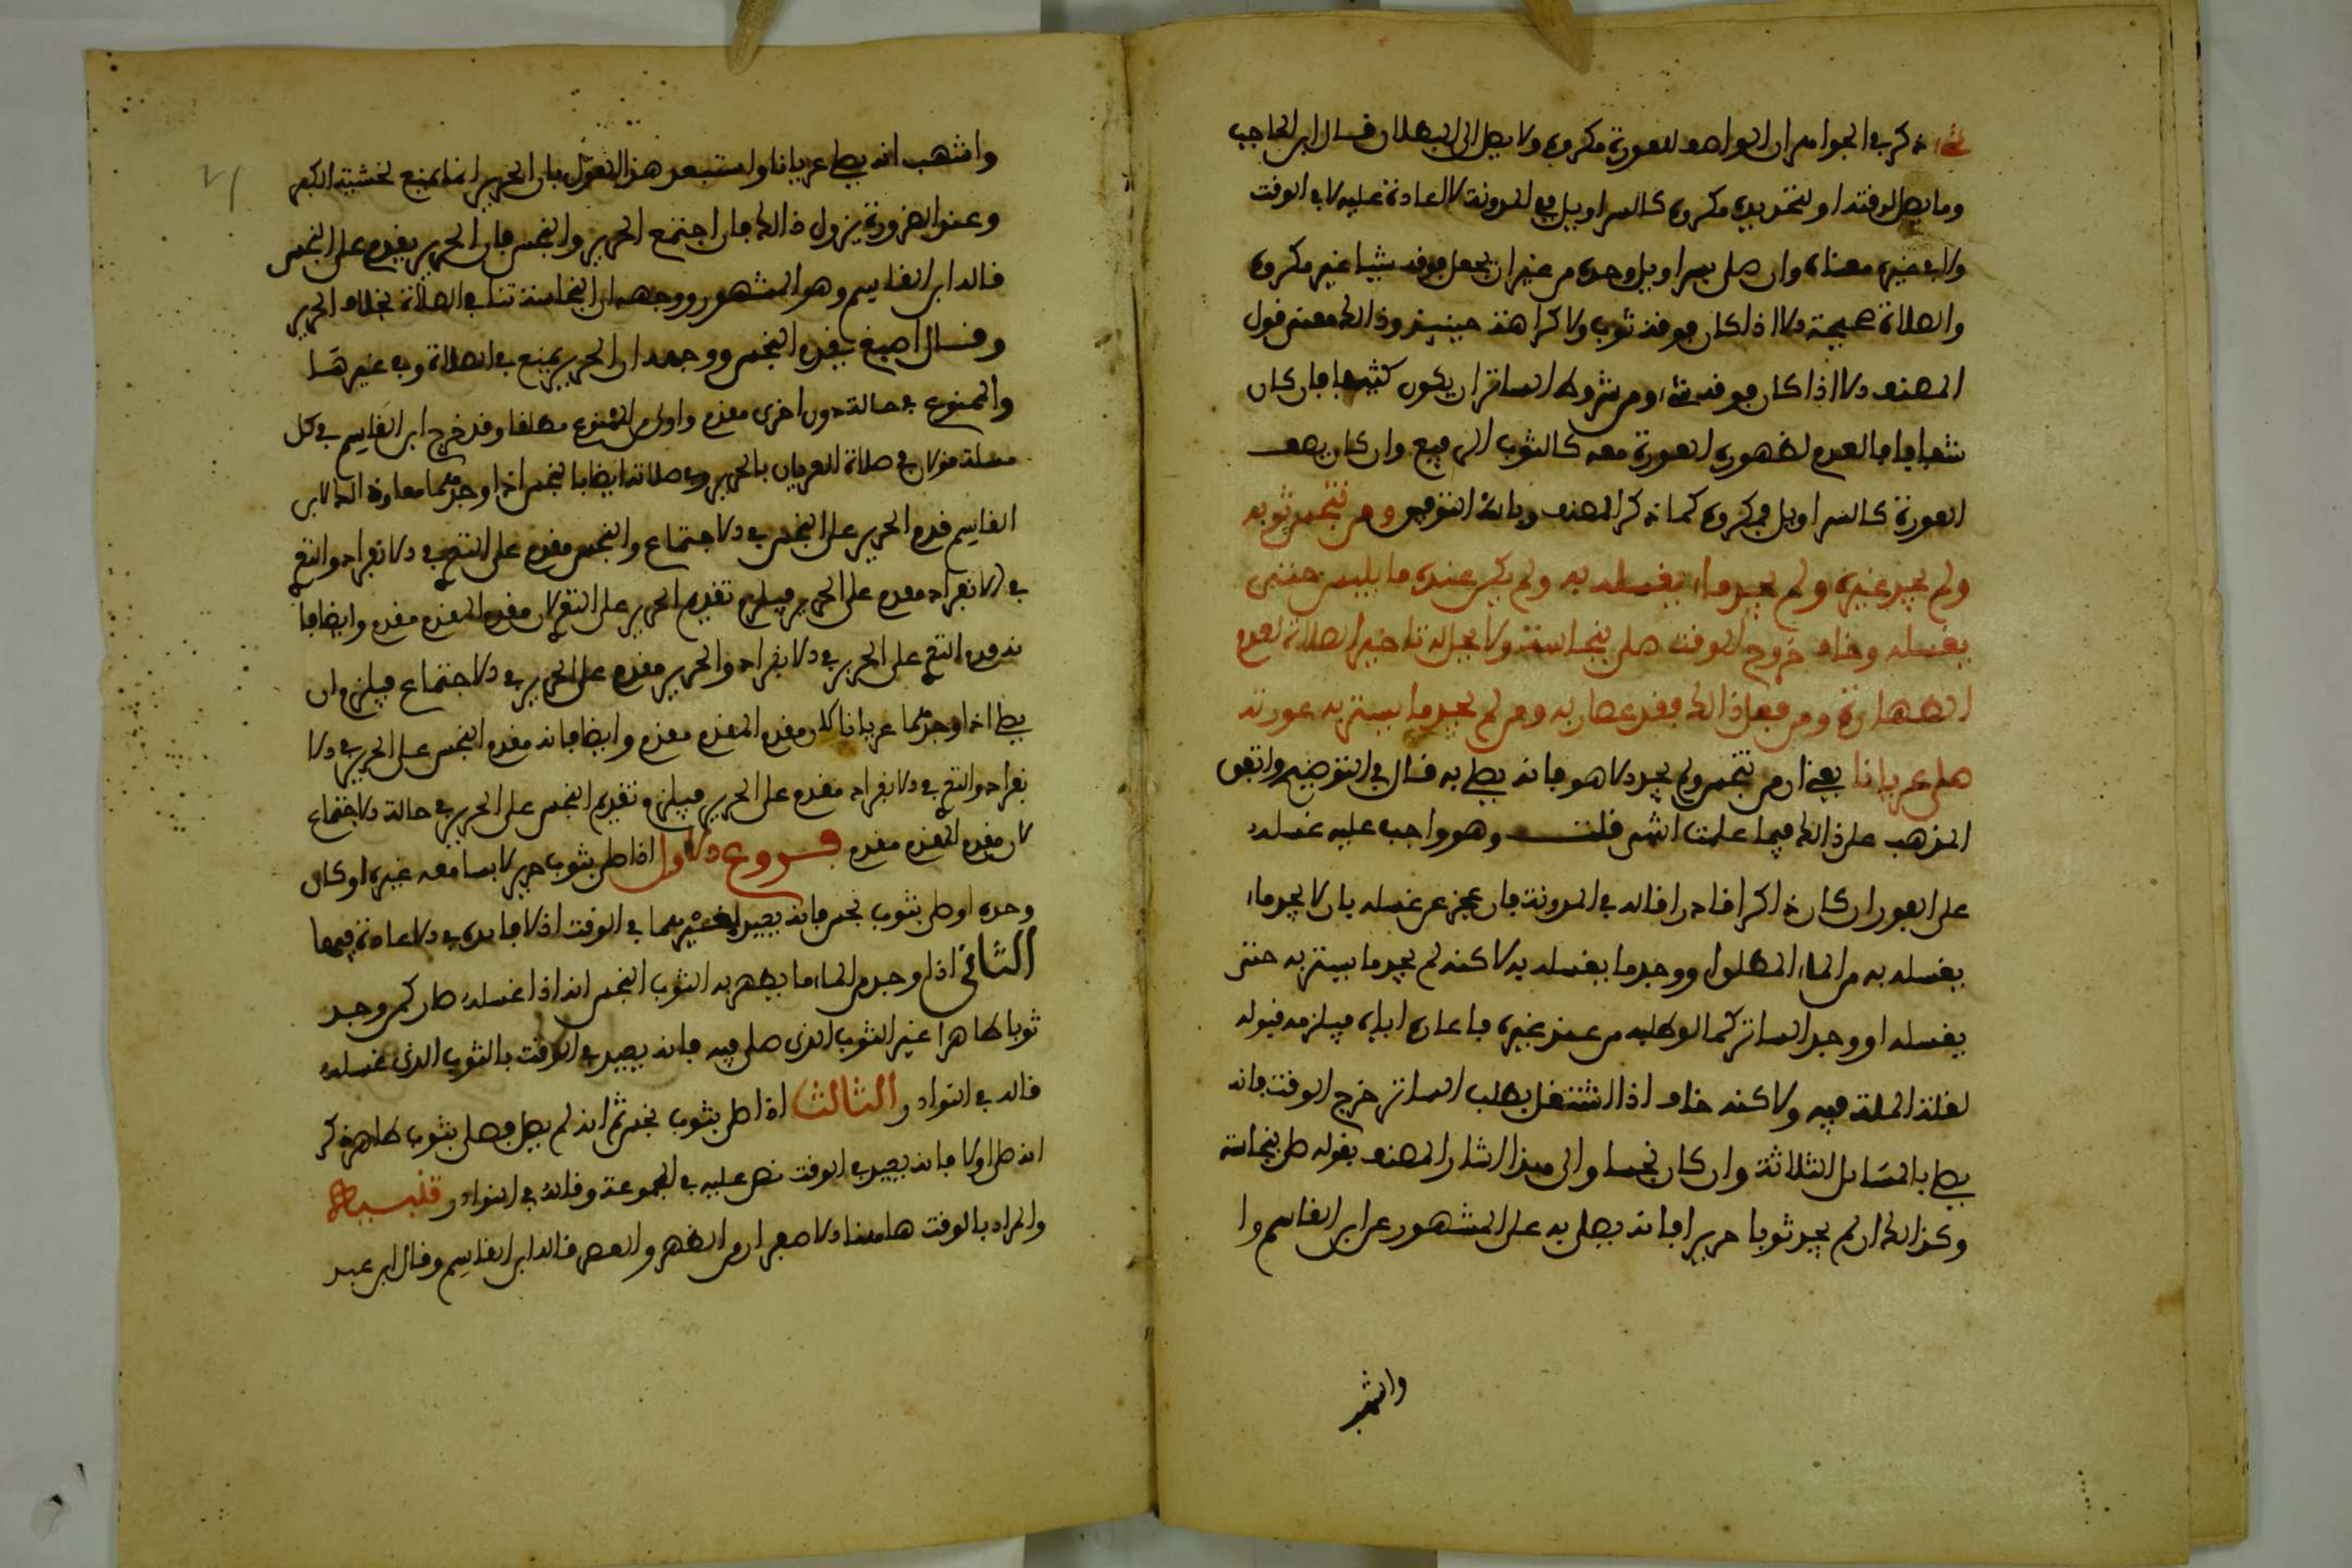 شيء ذكر في الجواهر ان الواصف للعورة مكروه ولا يصل الى البطلان قال ابن الحاجب
وما يصف لرقته او لتحديده مكروه كالسراويل في المدونة لا اعادة عليه لا في الوقت
ولا في غيره معناه وان صلى بسراويل وحده من غير ان يجعل فوقه شيا غير مكروه
والصلاة صحيحة الا اذا كان فوقه ثوب ولا كراهة حينيذ وذالك معنى قول
المصنف الا اذا كان فوقه شيء ومن شروط الساتر ان يكون كثيفا فان كان
شفافا فالعدم لظهور العورة معه كالثوب الرفيع وان كان يصف
العورة كالسراويل فمكروه كما ذكر المصنف وبالله التوفيق ومن تنجس ثوبه
ولم يجد غيره ولم يجد ماء يغسله به ولم يكن عنده ما يلبس حتى
يغسله وخاف خروج الوقت صلى بنجاسته ولا يحل له تاخير الصلاة لعدم
الطهارة ومن فعل ذالك فقد عصا ربه ومن لم يجد ما يستر به عورته
صلى عريانا يعني ان من تنجس ولم يجد الا هو فانه يصلي به قال في التوضيح واتفق
المذهب على ذالك فيما علمت انتهى قلت وهو واجب عليه غسله
على الفور ان كان ذاكرا قادرا قاله في المدونة فان عجز عن غسله بان لا يجد ماء
يغسله به من الماء المطلق او وجد ما يغسله به لاكنه لم يجد ما يستتر به حتى
يغسله او وجد الساتر كما لو طلبه من عند غيره فاعاره اياه فيلزمه قبوله
لقلة المنة فيه ولاكنه خاف اذا اشتغل بطلب الساتر خرج الوقت فانه
يصلي بالمسايل الثلاثة وان كان نجسا والى هذا اشار المصنف بقوله صلى بنجاسته
وكذالك ان لم يجد ثوبا حريرا فانه يصلي به على المشهور عن ابن القاسم وا
واشهب
واشهب انه يصلي عريانا واستبعد هذا القول بان الحرير انما يمنع لخشية الكبر
وعند الضرورة يزول ذالك فان اجتمع الحرير والنجس فان الحرير يقدم على النجس
قاله ابن القاسم وهو المشهور ووجهه ان النجاسة تنافي الصلاة بخلاف الحرير
وقال اصبغ يقدم النجس ووجهه ان الحرير يمنع في الصلاة وفي غيرها
والممنوع في حالة دون اخرى مقدم واولى من الممنوع مطلقا وقد خرج ابن القاسم في كل
مسلة قولان في صلاة العريان بالحرير وفي صلاته ايضا بالنجس اذا وجدهما معا وذالك لان ابن
القاسم قدم الحرير على النجس في الاجتماع والنجس مقدم على التعري في الانفراد والتعري
في الانفراد مقدم على الحرير فيلزم تقديم الحرير على التعري لان مقدم المقدم مقدم وايضا فا
نه قدم التعري على الحرير في الانفراد والحرير مقدم على الحرير في الاجتماع فيلزم ان
يصلي اذا وجدهما عريانا لان مقدم المقدم مقدم وايضا فانه مقدم النجس على الحرير في الا
نفراد والتعري في الانفراد مقدم على الحرير فيلزم تقديم النجس على الحرير في حالة الاجتماع
لان مقدم المقدم مقدم فروع الاول اذا صلى بثوب حرير لابسا معه غيره او كان
وحده او صلى بثوب نجس فانه يعيد لغيرهما في الوقت اذ لا فايدة في الاعادة فيهما
الثاني اذا وجد من الماء ما يطهر به الثوب النجس انه اذا غسله صار كمن وجد
ثوبا طاهرا غير الثوب الذي صلى فيه فانه يعيد في الوقت بالثوب الذي غسله
قاله في النوادر الثالث اذا صلى بثوب نجس ثم انه لم يصل فصلى بثوب طاهر ذكر
انه صلى اولا فانه يعيد في الوقت نص عليه في المجموعة وقاله في النوادر تنبيه
والمراد بالوقت هاهنا الاصفرار من الظهر والعصر قاله ابن القاسم وقال ابن عبد